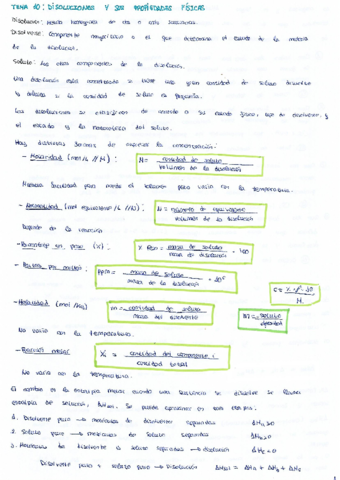 TEMA 10: DISOLUCIONES Y SUS PROPIEDADES FÍSICAS
Disolución: Mezcla homogénea de dos o más sustancias.
Disolvente: Componente mayoritario o el que determina el estado de la materia
de la disolución.
Soluto: Los otros componentes de la disolución.
Una disolución está concentrada si tiene una gran cantidad de soluto disuelto
y diluida si la cantidad de soluto es pequeña.
Las disoluciones se clasifican de acuerdo a su estado físico, tipo de disolvente y
el estado y la naturaleza del soluto.
Hay distintas formas de expresar la concentración:
- Molaridad (mol/L // M): M = cantidad de soluto / volumen de la disolución
facilidad para medir el volumen pero varía con la temperatura.
- Normalidad (mol equivalente/L // N): N = número de equivalentes / volumen de la disolución
Depende de la
- Porcentaje en peso (%): % peso = masa de soluto / masa de disolución · 100
- Partes por millón: ppm = masa de soluto / masa de disolución · 10⁶
- Molalidad (mol/kg) m = cantidad de soluto / masa del disolvente
No varía con la temperatura.
- Fracción molar Xᵢ = cantidad del componente i / cantidad total
No varía con la temperatura.
El cambio de la entalpía molar cuando una sustancia se disuelve se llama
entalpía de solución, ΔHsol. Se puede expresar en tres etapas:
1. Disolvente puro → moléculas de disolvente separadas ΔHa>0
2. Soluto puro → moléculas de soluto separadas ΔHb>0
3. Moléculas de disolvente y soluto separadas → disolución ΔHc<0
Disolvente puro + soluto puro → Disolución ΔHsol = ΔHa + ΔHb + ΔHc